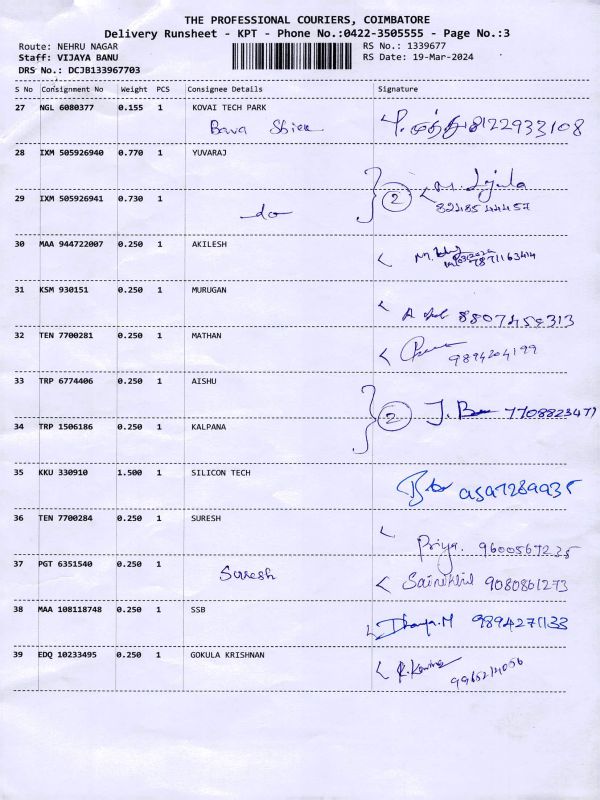 THE PROFESSIONAL COURIERS, COIMBATORE
Delivery Runsheet - KPT - Phone No.:0422-3505555 - Page No.:3
Route: NEHRU NAGAR RS No.: 1339677
Staff: VIJAYA BANU RS Date: 19-Mar-2024
DRS No.: DCJB133967703
S No Consignment No Weight PCS Consignee Details Signature
27 NGL 6080377 0.155 1 KOVAI TECH PARK
8122933108
28 IXM 505926940 0.770 1 YUVARAJ
2
29 IXM 505926941 0.730 1
do
30 MAA 944722007 0.250 1 AKILESH
31 KSM 930151 0.250 1 MURUGAN
32 TEN 7700281 0.250 1 MATHAN
9894204199
33 TRP 6774406 0.250 1 AISHU
2 7708823477
34 TRP 1506186 0.250 1 KALPANA
35 KKU 330910 1.500 1 SILICON TECH
36 TEN 7700284 0.250 1 SURESH
Priya. 9600567235
37 PGT 6351540 0.250 1
Suresh 9080861273
38 MAA 108118748 0.250 1 SSB
Dhanya.M 9894271133
39 EDQ 10233495 0.250 1 GOKULA KRISHNAN